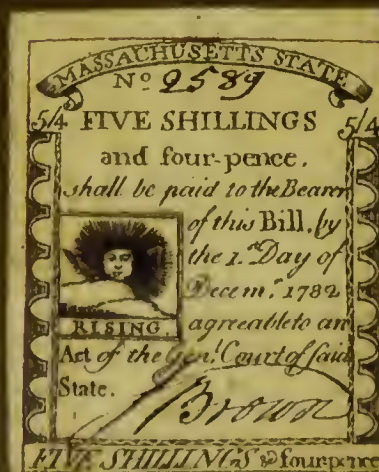 MASSACHUSETTS STATE
No 2589
5/4 FIVE SHILLINGS 5/4
and four-pence.
shall be paid to the Bearer
of this Bill, by
the 1.st Day of
Decemr. 1782
RISING
agreeable to an
Act of the Genl. Court of said
State.
Brown
FIVE SHILLINGS & fourpence